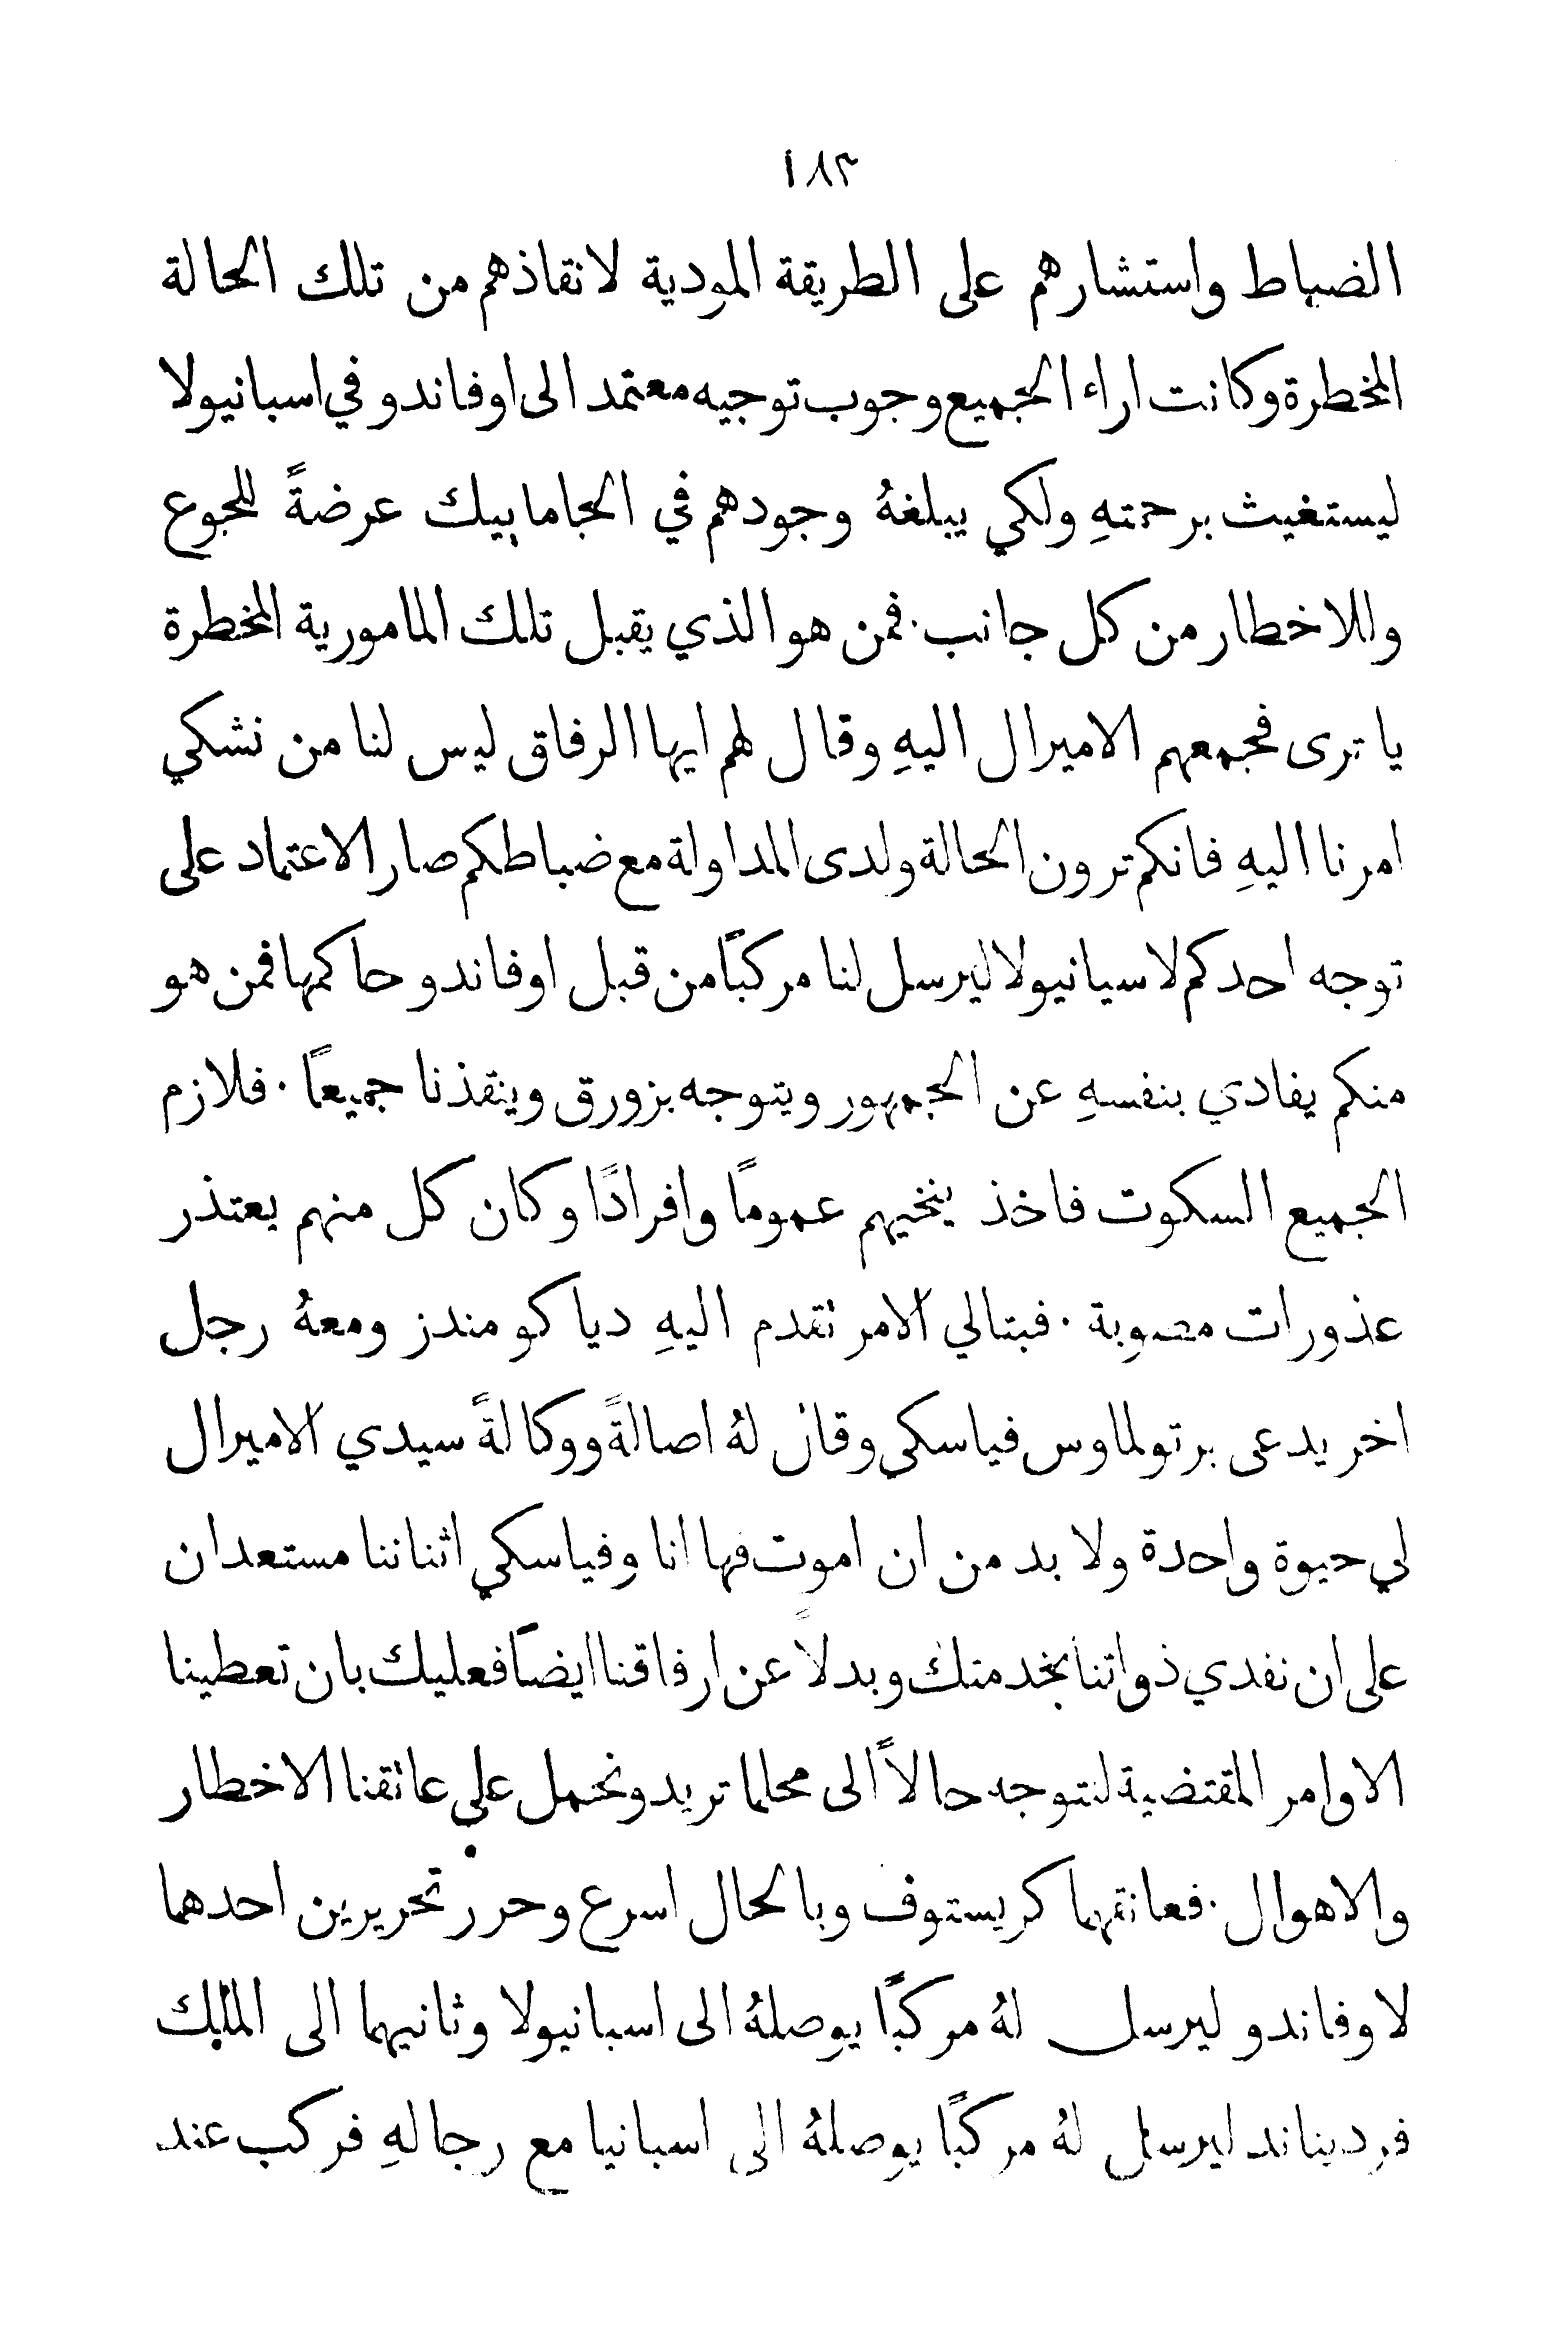 ١٨٣
الضباط واستشارهم على الطريقة المودية لانقاذهم من تلك الحالة
المخطرة وكانت اراء الجميع وجوب توجيه معتمد الى اوفاندو في اسبانيولا
ليستغيث برحمتهِ ولكي يبلغهُ وجودهم في الجامابيك عرضةً للجوع
وللاخطار من كل جانب. فمن هو الذي يقبل تلك المامورية المخطرة
يا ترى فجمعهم الاميرال اليهِ وقال لهم ايها الرفاق ليس لنا من نشكي
امرنا اليهِ فانكم ترون الحالة ولدى المداولة مع ضباطكم صار الاعتماد على
توجه احدكم لاسيانيولا ليرسل لنا مركبًا من قبل اوفاندو حاكمها فمن هو
منكم يفادي بنفسهِ عن الجمهور ويتوجه بزورق وينقذنا جميعًا. فلازم
الجميع السكوت فاخذ ينخيهم عمومًا وافرادًا وكان كل منهم يعتذر
عذورات مصوبة. فبتالي الامر تقدم اليهِ دياكو مندز ومعهُ رجل
اخر يدعى برتولماوس فياسكي وقال لهُ اصالةً ووكالةً سيدي الاميرال
لي حيوة واحدة ولا بد من ان اموت فها انا وفياسكي اثناننا مستعدان
على ان نفدي ذواتنا بخدمتك وبدلاً عن ارفاقنا ايضًا فعليك بان تعطينا
الاوامر المقتضية لنتوجه حالاً الى محلما تريد ونحمل على عاتقنا الاخطار
والاهوال. فعانقهما كريستوف وبالحال اسرع وحرر تحريرين احدهما
لاوفاندو ليرسل لهُ مركبًا يوصلهُ الى اسبانيولا وثانيهما الى الملك
فرديناند ليرسل لهُ مركبًا يوصلهُ الى اسبانيا مع رجالهِ فركب عند